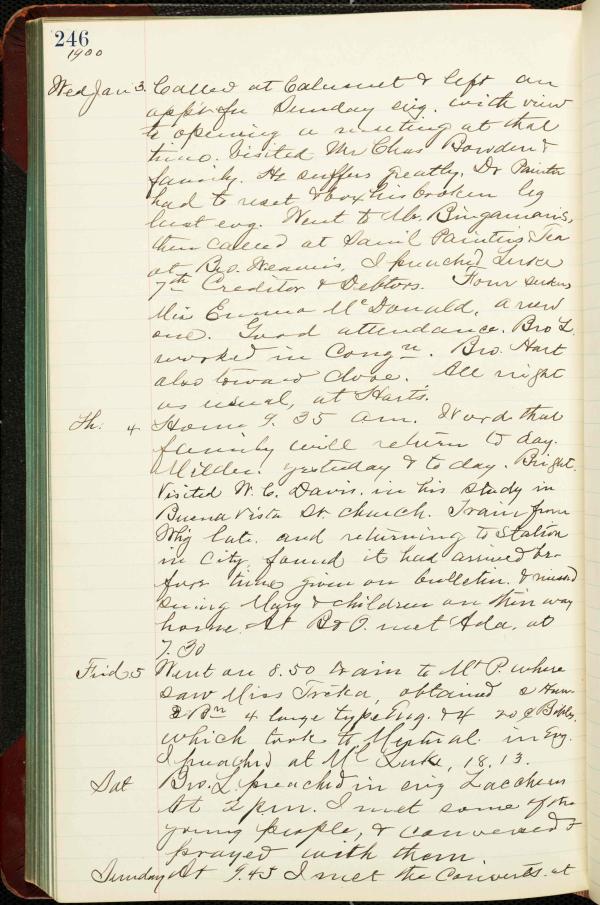 246
1900
Wed Jan 3. Called at Calumet & left an
app't for Sunday evg. with view
to opening a meeting at that
time. Visited Mr Chas Bowden &
family. He suffers greatly. Dr Painter
had to reset & box his broken leg
last evg. Went to Mr. Bingaman's,
then called at Sam'l Painter's Tea
at Bro. Weavers. I preached Luke
7th Creditor & Debtors. Four seekers
Miss Emma McDonald, a new
one. Good attendance. Bro L.
worked in Congn. Bro. Hart
also toward close. All night
as usual, at Harts.
Th. 4 Home 9.35 am. Word that
family will return to day.
Milder. yesterday & to day. Bright.
Visited W. C. Davis. in his study in
Buena Vista St church. Train from
Whg late. and returning to Station
in City, found it had arrived be-
fore time given on bulletin. & missed
seeing Mary & children on their way
home. At B&O. met Ada, at
7.30
Frid 5 Went on 8.50 train to Mt P. where
saw Miss Treka, obtained 2
4 large type Eng. & 4 20¢ Bibles,
which took to in Evg.
I preached at Luke, 18.13.
Sat Bro. L. preached in evg Zaccheus
At 2 pm. I met some of the
young people, & conversed &
prayed with them.
Sunday At 9.45 I met the Converts. at